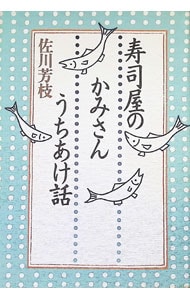 寿司屋の
かみさん
うちあけ話
佐川芳枝